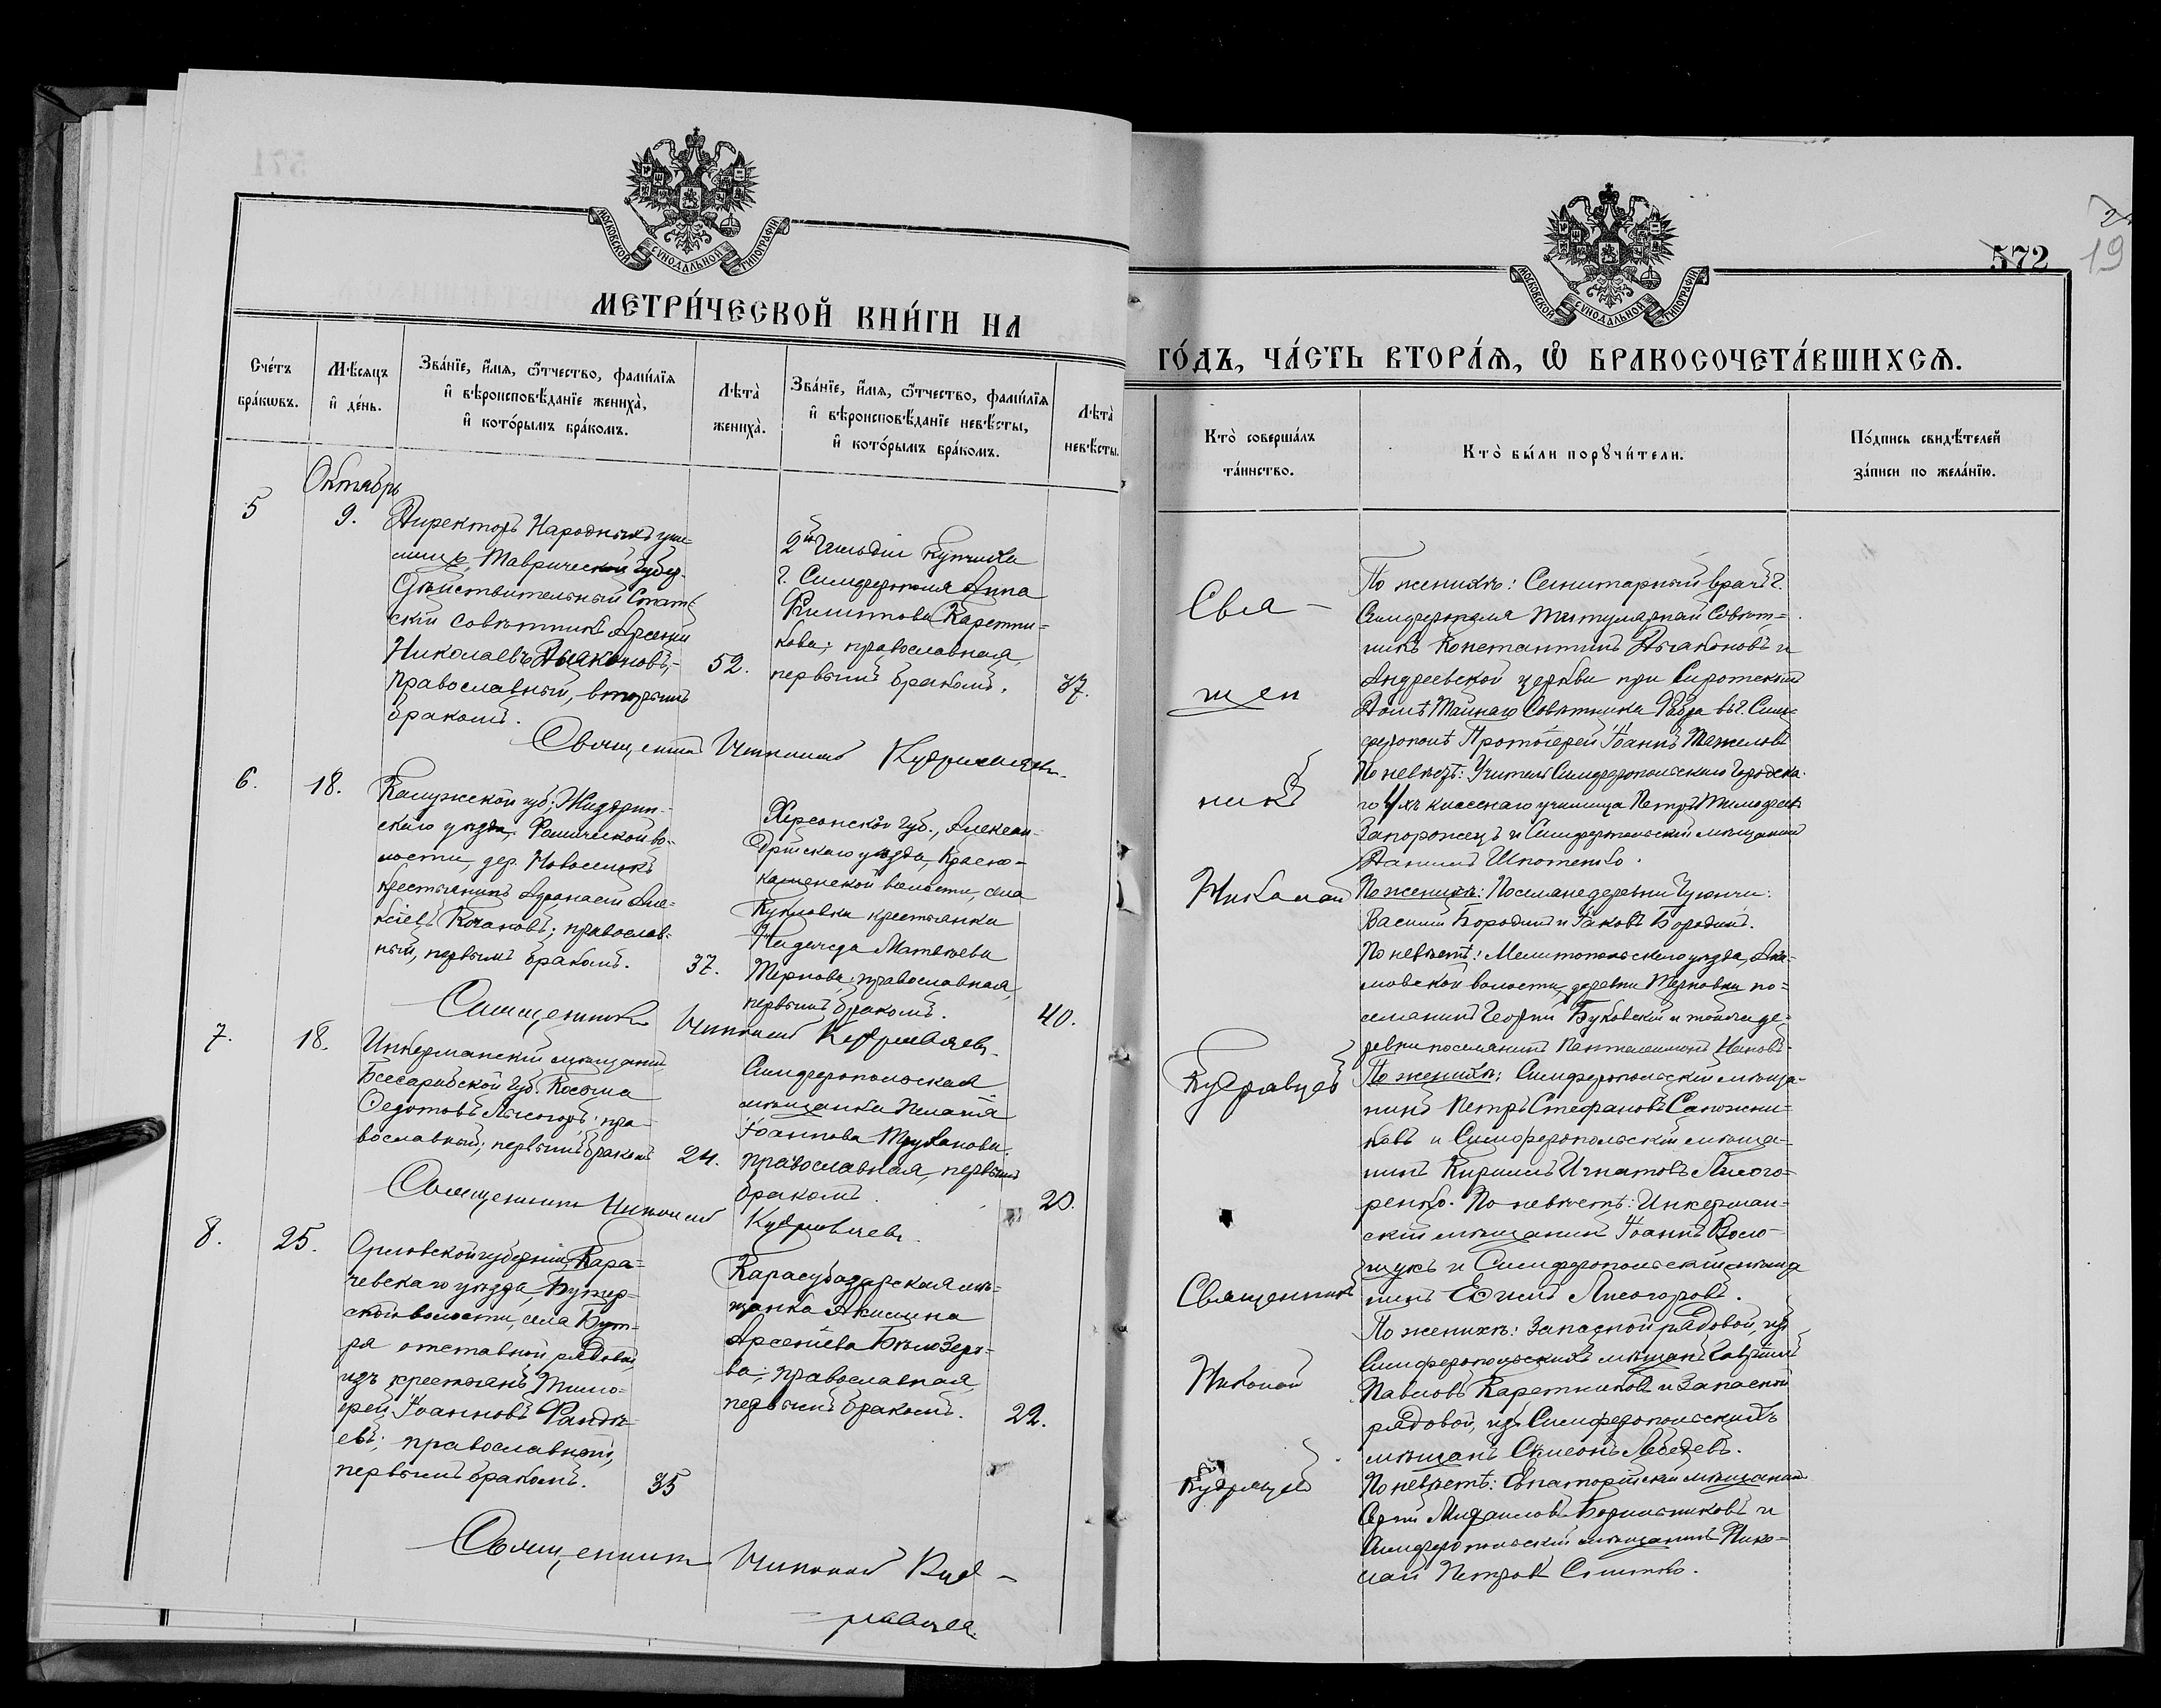 МОСКОВСКОЙ СѴНОДАЛЬНОЙ ТИПОГРАФІИ
МЕТРИ́ЧЕСКОЙ КНИ́ГИ НА
Сче́тъ бра́ковъ.
Мѣ́сяцъ и де́нь.
Зва́нїе, и́мѧ, ѻ҆́тчество, фами́лїѧ
и҆ вѣроисповѣ́данїе жениха̀,
и҆ кото́рымъ бра́комъ.
Лѣта̀ жениха̀.
Зва́нїе, и́мѧ, ѻ҆́тчество, фами́лїѧ
и҆ вѣроисповѣ́данїе невѣ́сты,
и҆ кото́рымъ бра́комъ.
Лѣта̀ невѣ́сты.
Октябрь
5
9.
Директоръ Народныхъ учи-
лищъ Таврической губер.
Дѣйствительный Стат-
скій совѣтникъ Арсеній
Николаевъ Дьяконовъ,
православный, вторымъ
бракомъ.
52.
2й Гильдіи купчиха
г. Симферополя Анна
Филиппова Каретни-
кова; православная,
первымъ бракомъ.
37.
Священникъ Николай Кудрявцевъ
6.
18.
Калужской губ; Жиздрин-
скаго уѣзда, во-
лости, дер. Новоселокъ
крестьянинъ Афанасій Але-
ксіевъ православ-
ный, первымъ бракомъ.
37.
Херсонской губ., Алексан-
дрійскаго уѣзда, Красно-
каменской волости, села
Куколовки крестьянка
Надежда Матвѣева
Тернова; православная,
первымъ бракомъ.
40.
Священникъ Николай Кудрявцевъ.
7.
18.
Инкерманскій мѣщанинъ
Бессарабской губ. Косьма
Ѳедотовъ Лысогоръ; пра-
вославный; первымъ бракомъ
24.
Симферопольская
мѣщанка Пелагія
Іоаннова Труханова;
православная, первымъ
бракомъ.
20.
Священникъ Николай Кудрявцевъ.
8.
25.
Орловской губерніи, Кара-
чевскаго уѣзда,
ской волости, села Бут-
ра отставной рядовой,
изъ крестьянъ Тимо-
фей Іоанновъ Фандѣ-
евъ; православный,
первымъ бракомъ.
35
Карасубазарская мѣ-
щанка Акилина
Арсеніева Бѣлозеро-
ва; православная,
первымъ бракомъ.
22.
Священникъ Николай Куд-
рявцевъ
МОСКОВСКОЙ СѴНОДАЛЬНОЙ ТИПОГРАФІИ
572
19
ГО́ДЪ, ЧА́СТЬ ВТОРА́Ѧ, Ѽ БРАКОСОЧЕТА́ВШИХСѦ.
Кто̀ соверша́лъ та́инство.
Кто̀ бы́ли порꙋчи́тели.
По́дпись свидѣ́телей за́писи по жела́нїю.
Свя-
щен
никъ
Николай
Кудрявцевъ
По женихѣ: Санитарный врачъ г.
Симферополя Титулярный Совѣт-
никъ Константинъ Дьяконовъ и
Андреевской церкви при Сиротскомъ
Домѣ Тайнаго Совѣтника Фабра въ г. Сим-
ферополѣ Протоіерей Іоаннъ Тяжеловъ
По невѣстѣ: Учитель Симферопольскаго Городска-
го 4хъ класснаго училища Петръ Тимофеевъ
Запорожецъ и Симферопольскій мѣщанинъ
Даніилъ Шпотенко.
По женихѣ: Поселяне деревни Чуюнчи:
Василій Бородинъ и Іаковъ Бородинъ.
По невѣстѣ: Мелитопольскаго уѣзда, Аки-
мовской волости, деревни Терновки по-
селянинъ Георгій Буковскій и той же де-
ревни поселянинъ Пантелеимонъ
По женихѣ: Симферопольскій мѣща-
нинъ Петръ Стефановъ Сапожни-
ковъ и Симферопольскій мѣща-
нинъ Кириллъ Игнатовъ Лысого-
ренко. По невѣстѣ: Инкерман-
скій мѣщанинъ Іоаннъ Воло-
щукъ и Симферопольскій мѣща
нинъ Лысогоровъ.
Священникъ
Николай
Кудрявцевъ
По женихѣ: Запасной рядовой, изъ
Симферопольскихъ мѣщанъ Гавріилъ
Павловъ Каретниковъ и Запасной
рядовой, изъ Симферопольскихъ
мѣщанъ Симеонъ Лебедевъ.
По невѣстѣ: Евпаторійскій мѣщанинъ
Сергій Михаиловъ и
Симферопольскій мѣщанинъ Нико-
лай Петровъ